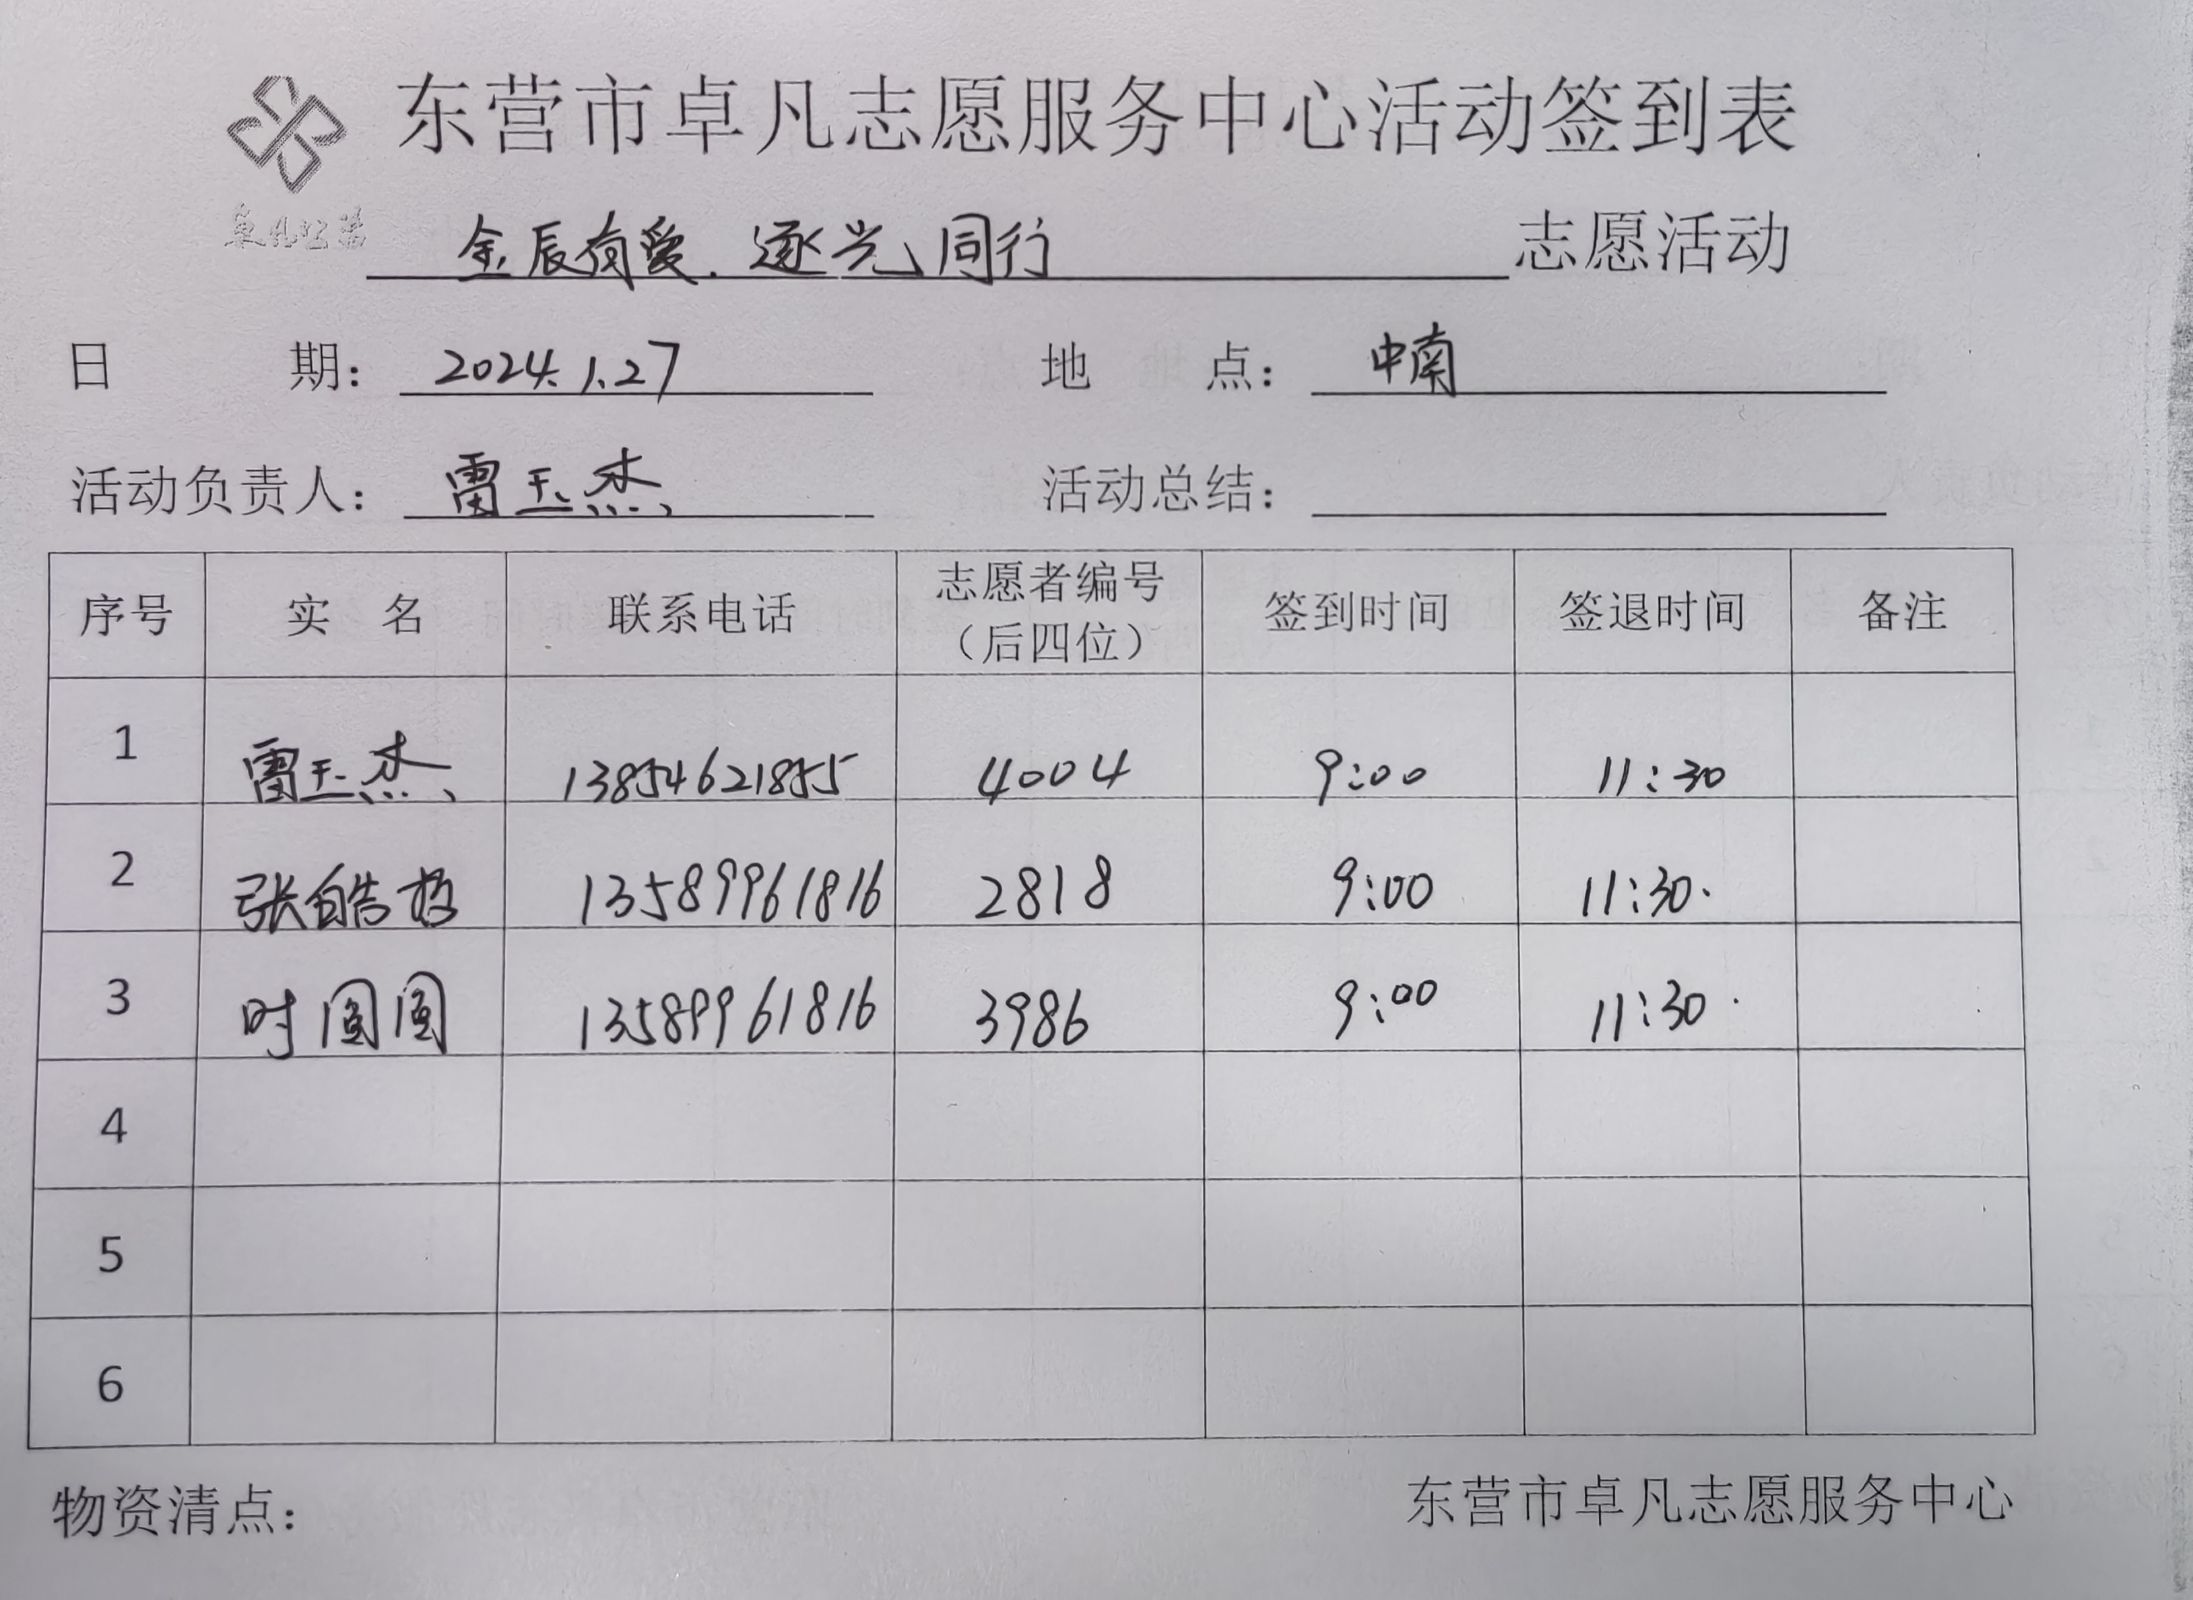 东营市卓凡志愿服务中心活动签到表
金辰有爱.逐光同行 志愿活动
日 期： 2024.1.27 地 点： 中南
活动负责人： 雷玉杰 活动总结：
序号 实 名 联系电话 志愿者编号（后四位） 签到时间 签退时间 备注
1 雷玉杰 13854621855 4004 9:00 11:30
2 张皓哲 13589961816 2818 9:00 11:30.
3 时圆圆 13589961816 3986 9:00 11:30.
4
5
6
物资清点： 东营市卓凡志愿服务中心